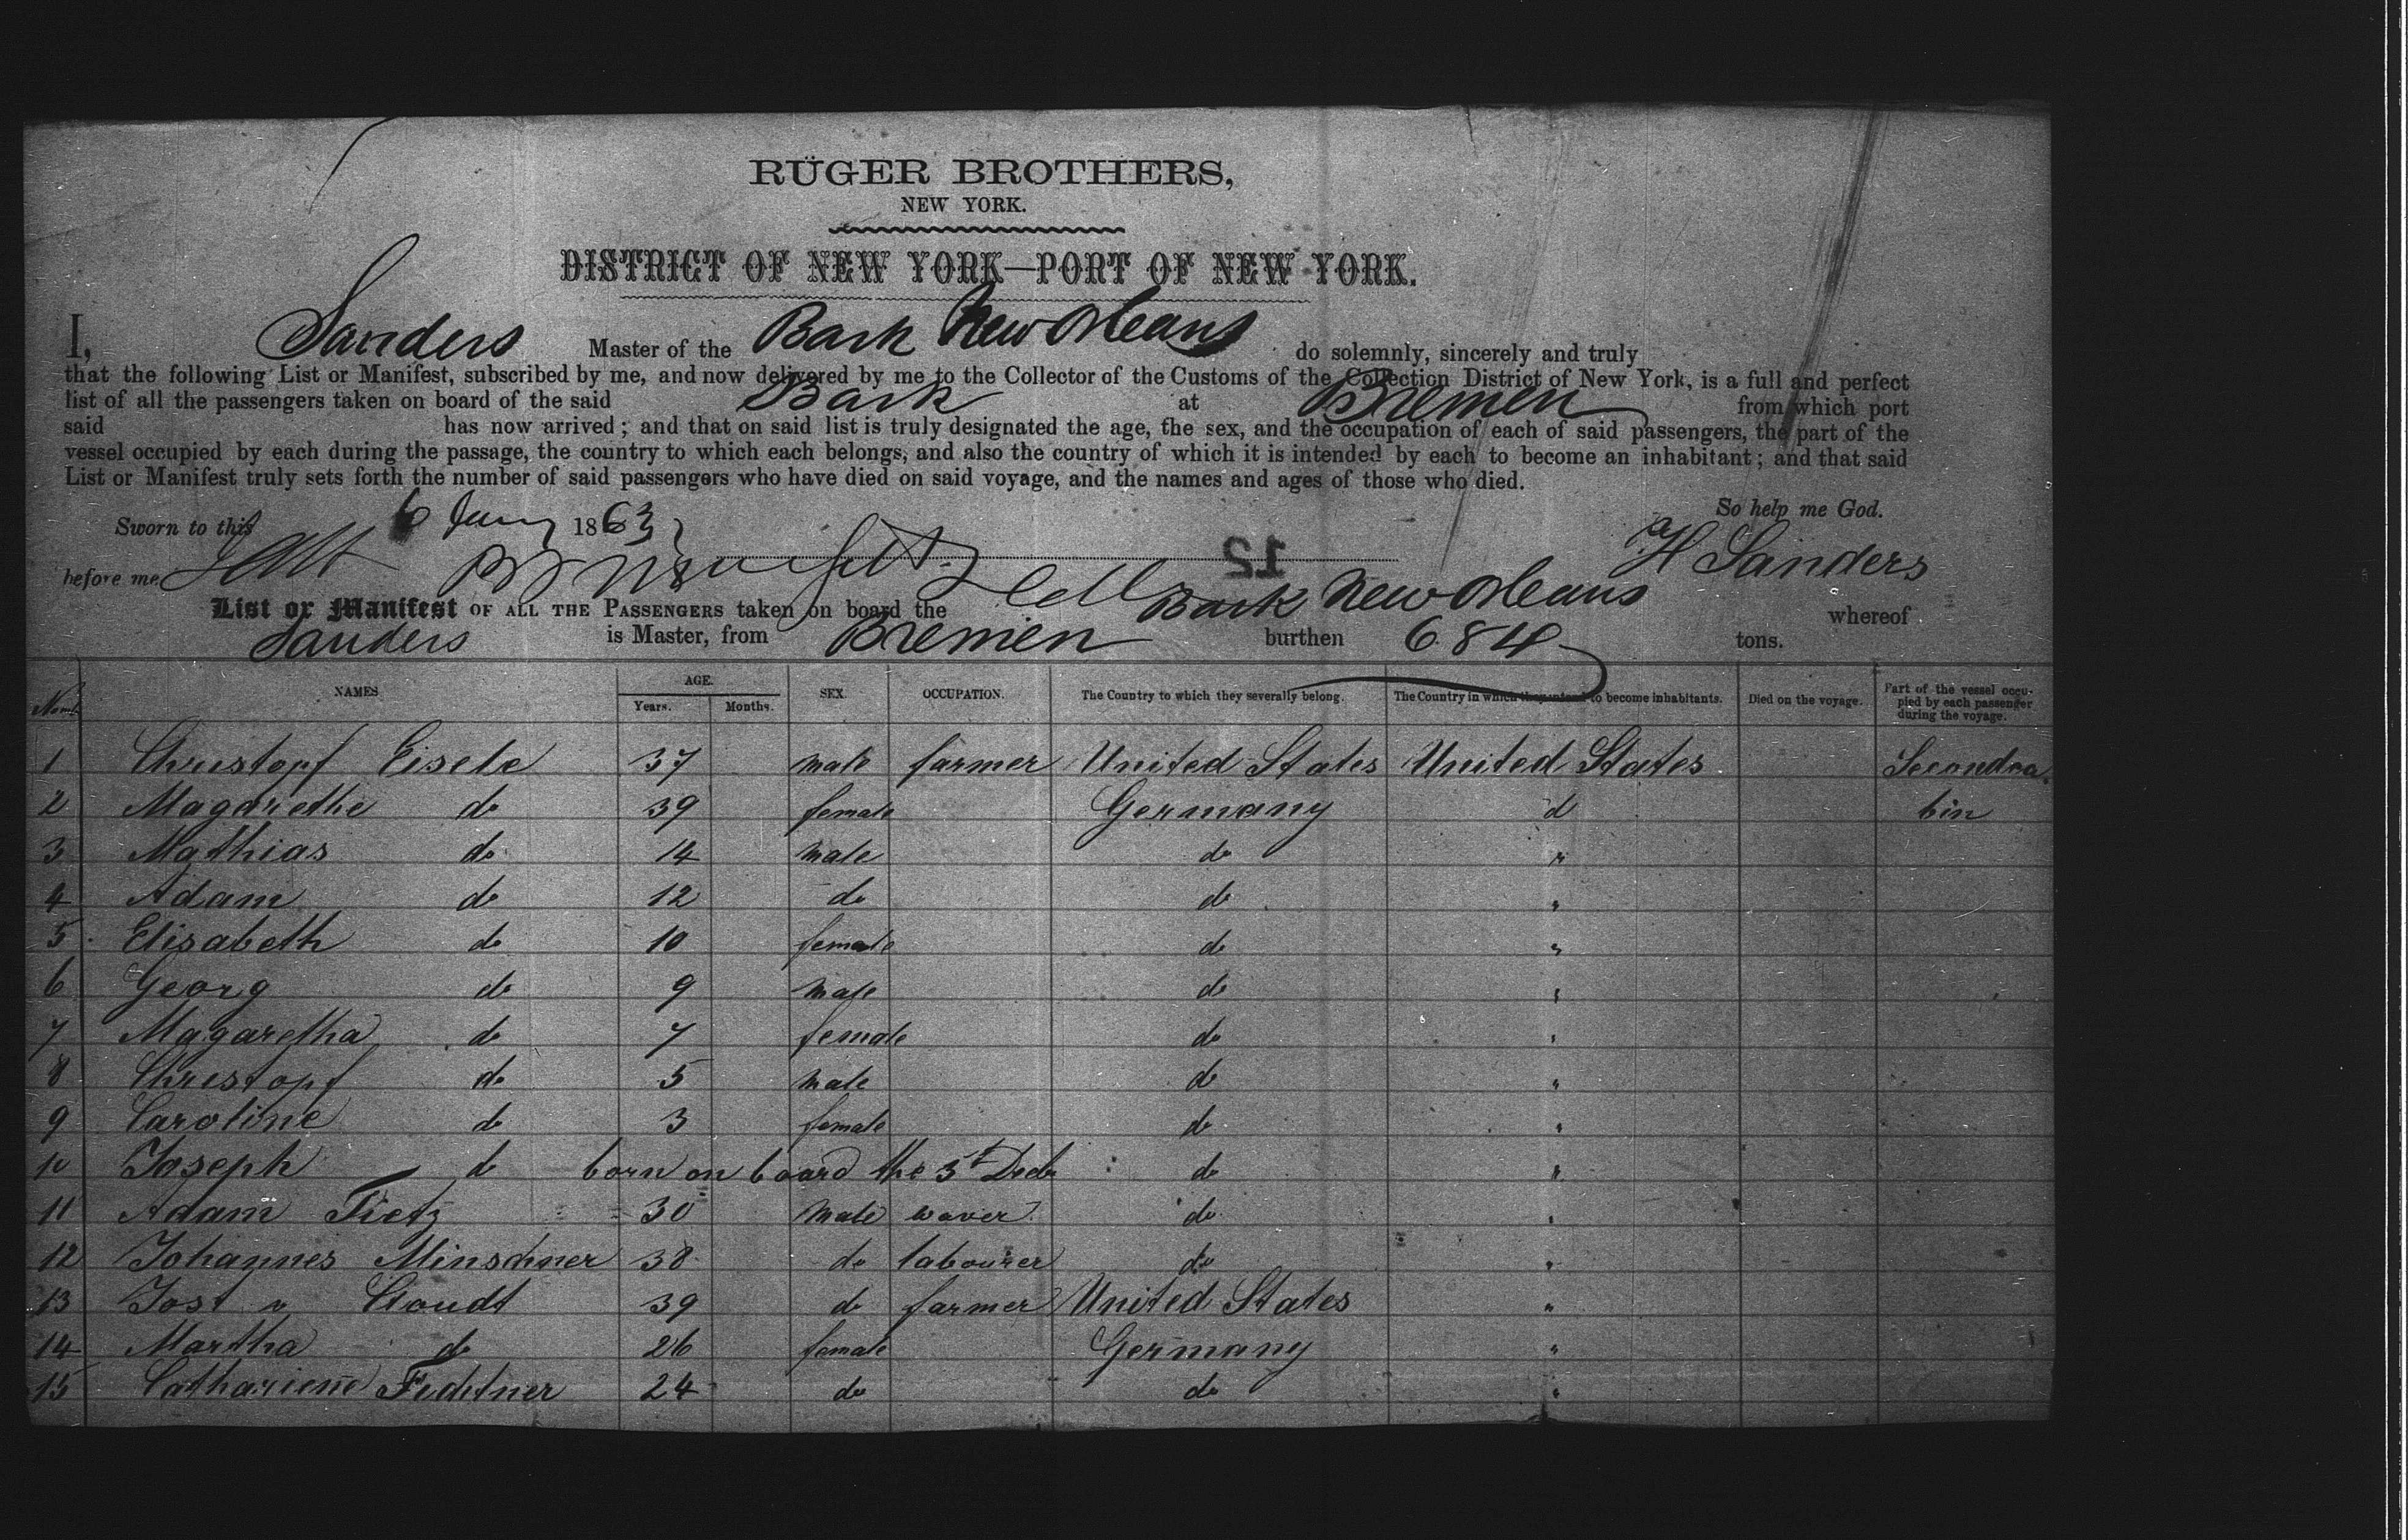 RÜGER BROTHERS,
NEW YORK.
DISTRICT OF NEW YORK—PORT OF NEW YORK.
I, Sanders Master of the Bark New Orleans do solemnly, sincerely and truly
that the following List or Manifest, subscribed by me, and now delivered by me to the Collector of the Customs of the Collection District of New York, is a full and perfect
list of all the passengers taken on board of the said Bark at Bremen from which port
said has now arrived; and that on said list is truly designated the age, the sex, and the occupation of each of said passengers, the part of the
vessel occupied by each during the passage, the country to which each belongs, and also the country of which it is intended by each to become an inhabitant; and that said
List or Manifest truly sets forth the number of said passengers who have died on said voyage, and the names and ages of those who died.
So help me God.
Sworn to this 6 Jany 1863
12
before me H Sanders
List or Manifest OF ALL THE PASSENGERS taken on board the Bark New Orleans whereof
Sanders is Master, from Bremen burthen 684 tons.
NAMES AGE. SEX. OCCUPATION. The Country to which they severally belong. The Country in which they intend to become inhabitants. Died on the voyage. Part of the vessel occupied by each passenger during the voyage.
Years. Months.
1 Christopf Eisele 37 male farmer United States United States Secondca
2 Magarethe do 39 female Germany d bin
3 Mathias do 14 male do "
4 Adam do 12 do do "
5 Elisabeth do 10 female do "
6 Georg do 9 male do "
7 Magaretha do 7 female do "
8 Christopf do 5 male do "
9 Caroline do 3 female do "
10 Joseph do born on board the 5t Decbr do "
11 Adam Tietz 30 male waver do "
12 Johannes Minschner 38 do labourer do "
13 Jost v Stoudt 39 do farmer United States "
14 Martha do 26 female Germany "
15 Cathariene 24 do do "